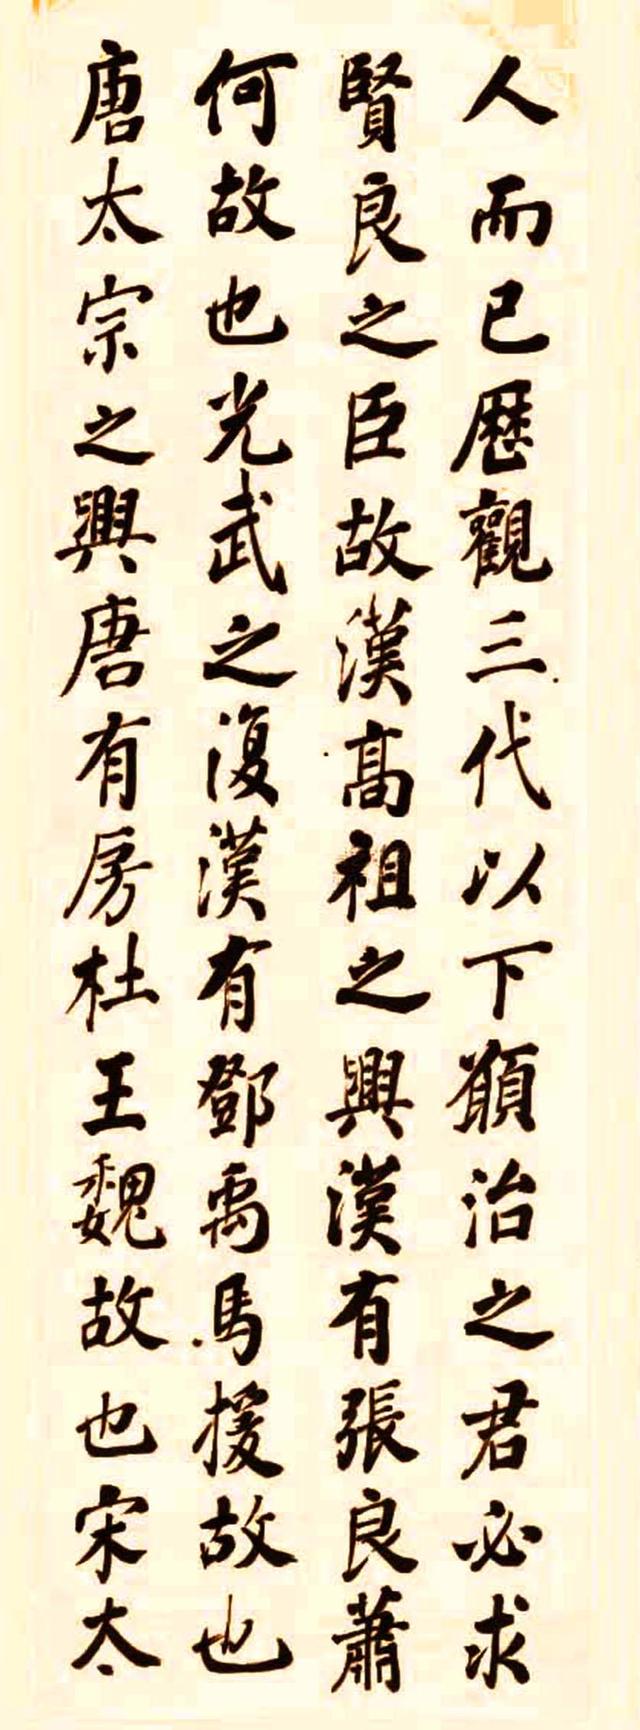 人而已歷觀三代以下願治之君必求
賢良之臣故漢高祖之興漢有張良蕭
何故也光武之復漢有鄧禹馬援故也
唐太宗之興唐有房杜王魏故也宋太